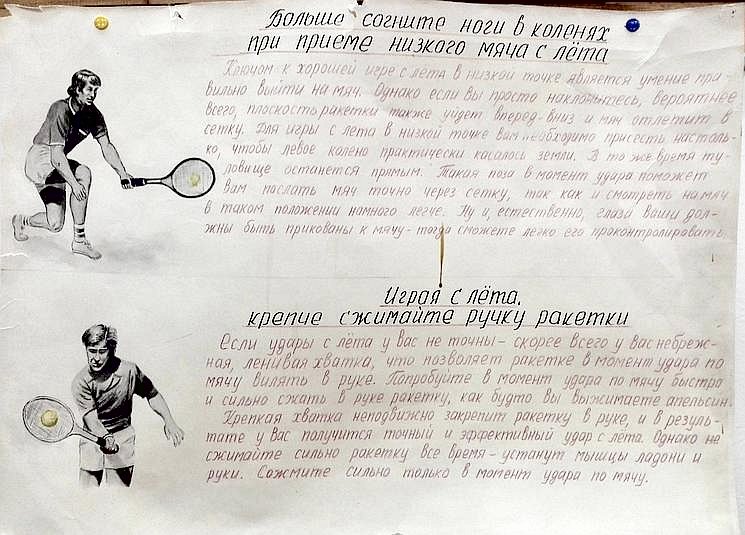 Больше согните ноги в коленях
при приеме низкого мяча с лёта
Ключом к хорошей игре с лета в низкой точке является умение пра-
вильно выйти на мяч. Однако если вы просто наклонитесь, вероятнее
всего, плоскость ракетки также уйдет вперед-вниз и мяч отлетит в
сетку. Для игры с лета в низкой точке вам необходимо присесть настоль-
ко, чтобы левое колено практически касалось земли. В то же время ту-
ловище останется прямым. Такая поза в момент удара поможет
вам послать мяч точно через сетку, так как и смотреть на мяч
в таком положении намного легче. Ну и, естественно, глаза ваши дол-
жны быть прикованы к мячу - тогда сможете легко его проконтролировать.
Играя с лёта,
крепче сжимайте ручку ракетки
Если удары с лёта у вас не точны - скорее всего у вас небреж-
ная, ленивая хватка, что позволяет ракетке в момент удара по
мячу вилять в руке. Попробуйте в момент удара по мячу быстро
и сильно сжать в руке ракетку, как будто вы выжимаете апельсин.
Крепкая хватка неподвижно закрепит ракетку в руке, и в резуль-
тате у вас получится точный и эффективный удар с лёта. Однако не
сжимайте сильно ракетку все время - устанут мышцы ладони и
руки. Сожмите сильно только в момент удара по мячу.